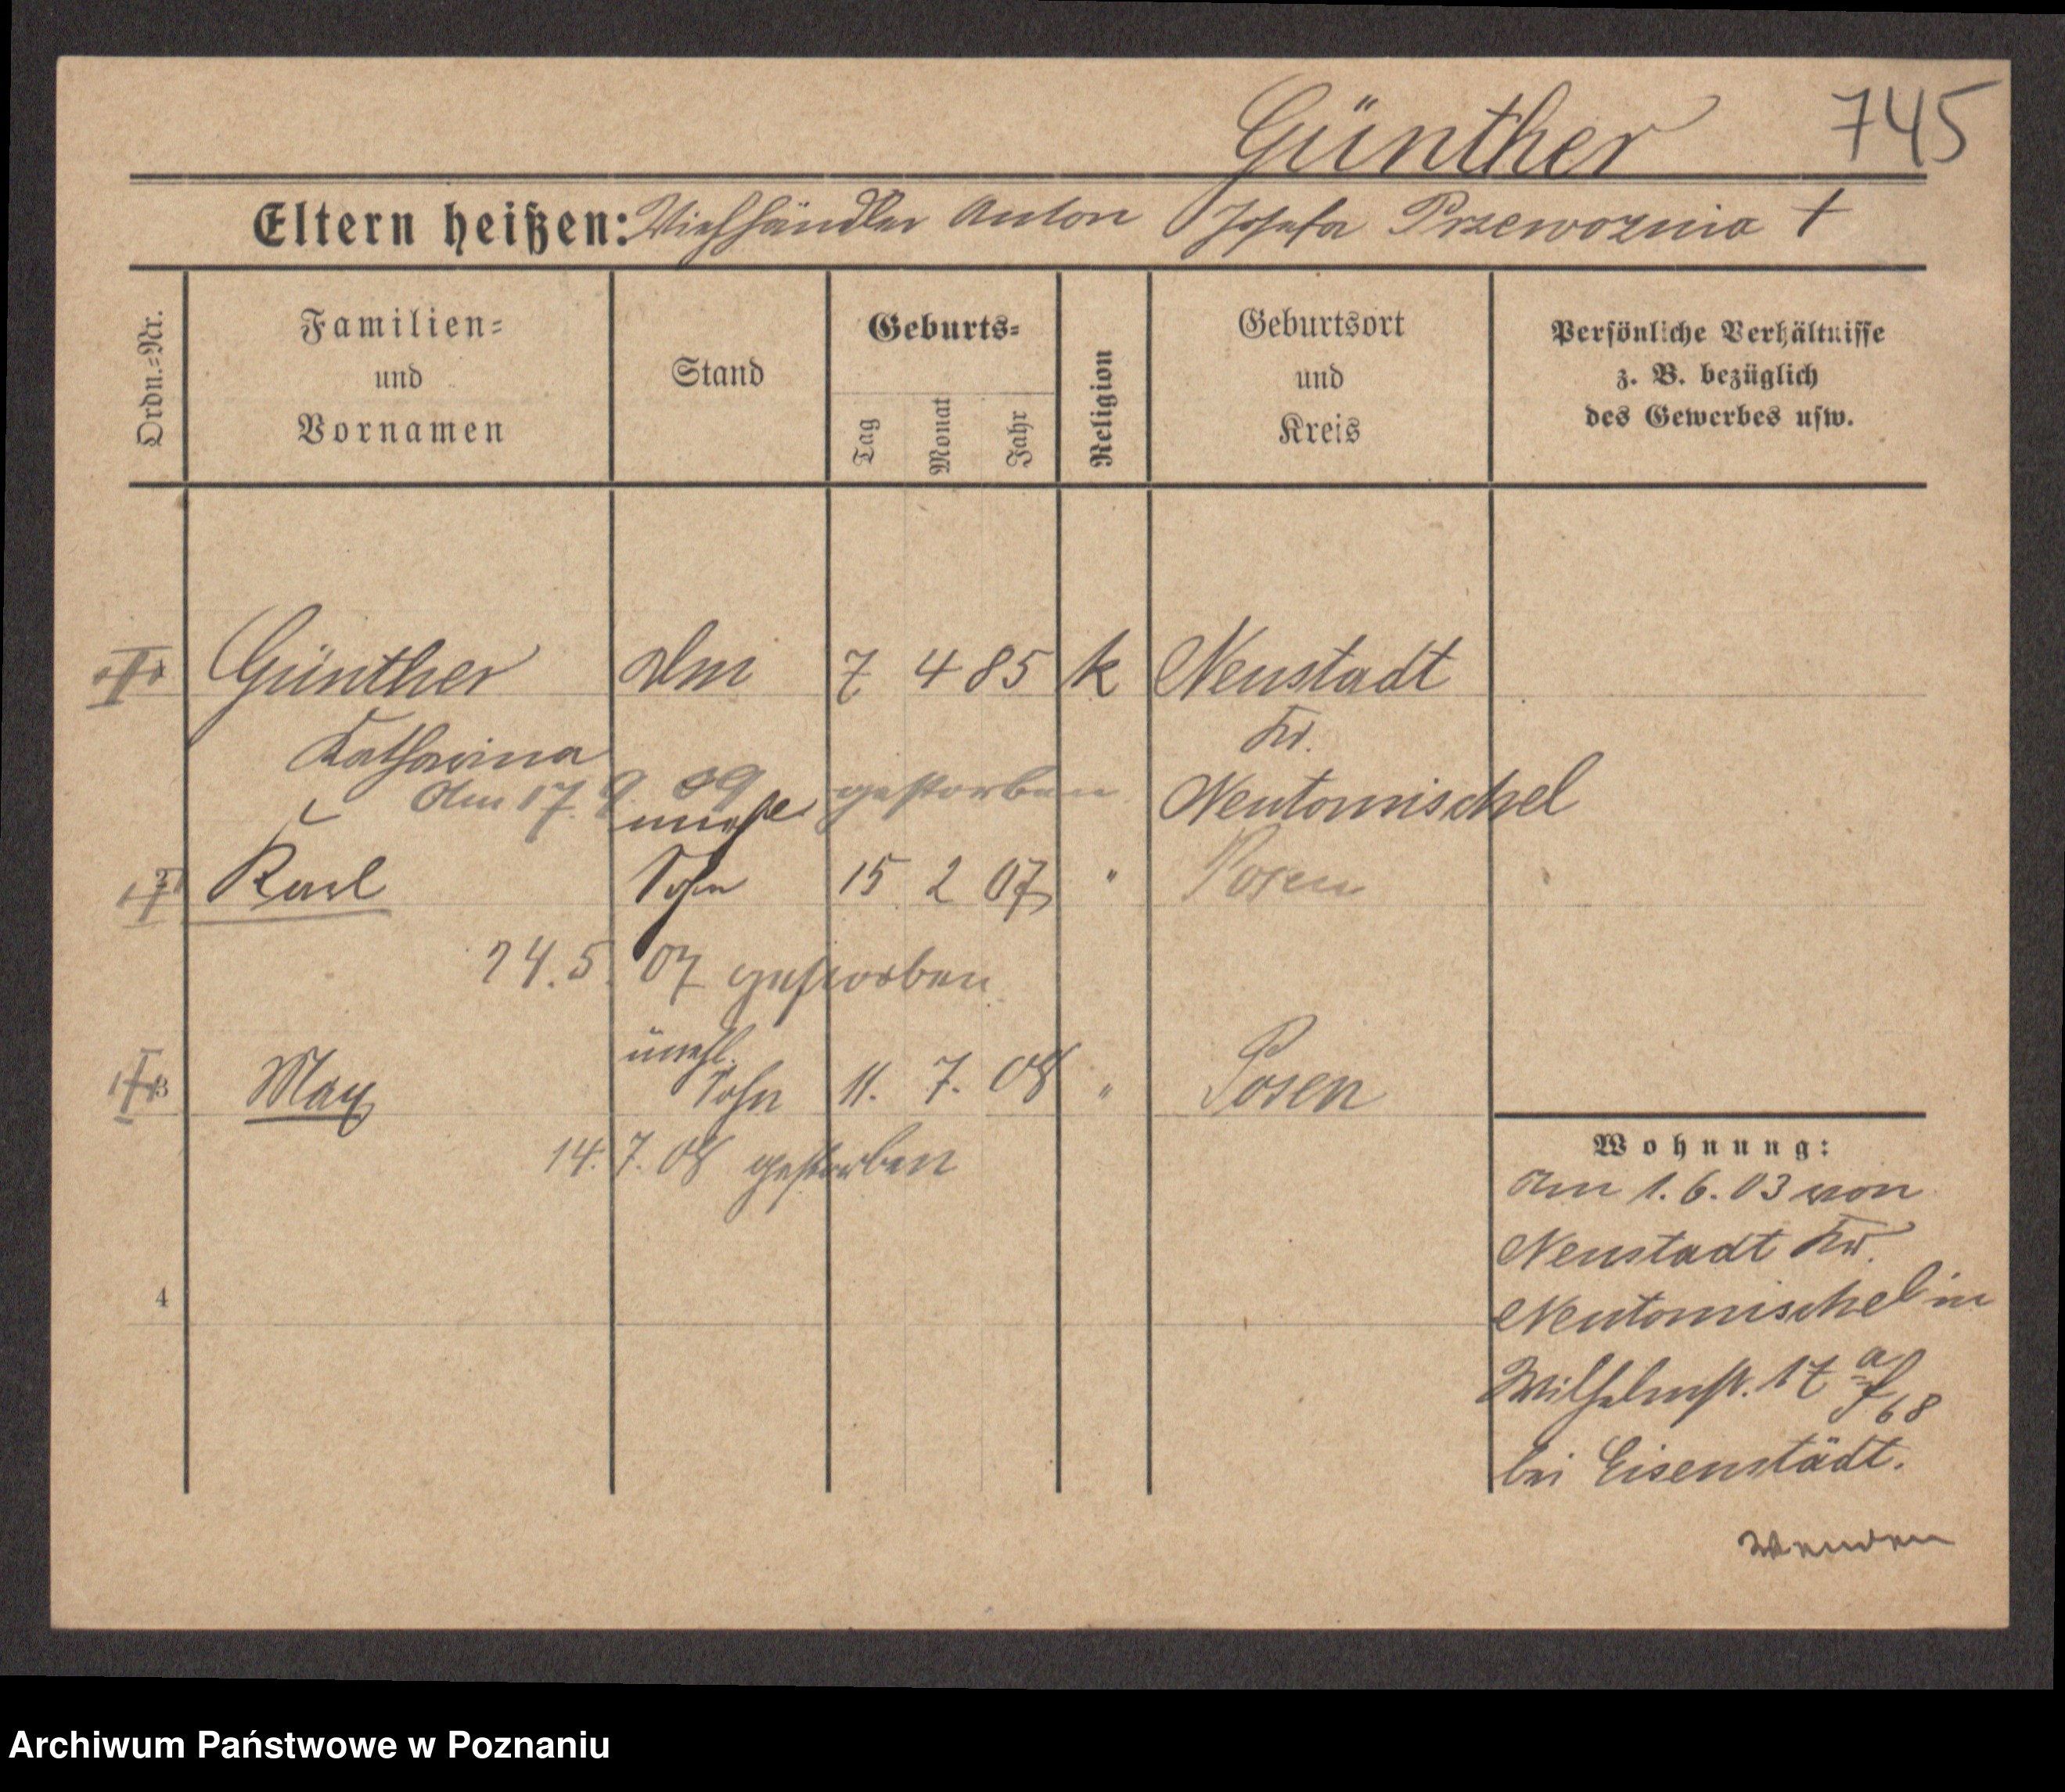 Günther 745
Eltern heißen: Viehhändler Anton Josefa Przewoznia †
Ordn.=Nr.
Familien=
und
Vornamen
Stand
Geburts=
Tag
Monat
Jahr
Religion
Geburtsort
und
Kreis
Persönliche Verhältnisse
z. B. bezüglich
des Gewerbes usw.
Günther 7 4 85 k Neustadt
Katharina Kr.
Am 17. 9. 09 gestorben Neutomischel
unehe
Karl Sohn 15 2 07 " Posen
24. 5. 07 gestorben
unehl.
3 Max Sohn 11. 7. 08 " Posen
14. 7. 08 gestorben
4
Wohnung:
Am 1. 6. 03 von
Neustadt Kr.
Neutomischel in
Wilhelmstr. 17 a 68
bei Eisenstädt.
Wenden
Archiwum Państwowe w Poznaniu